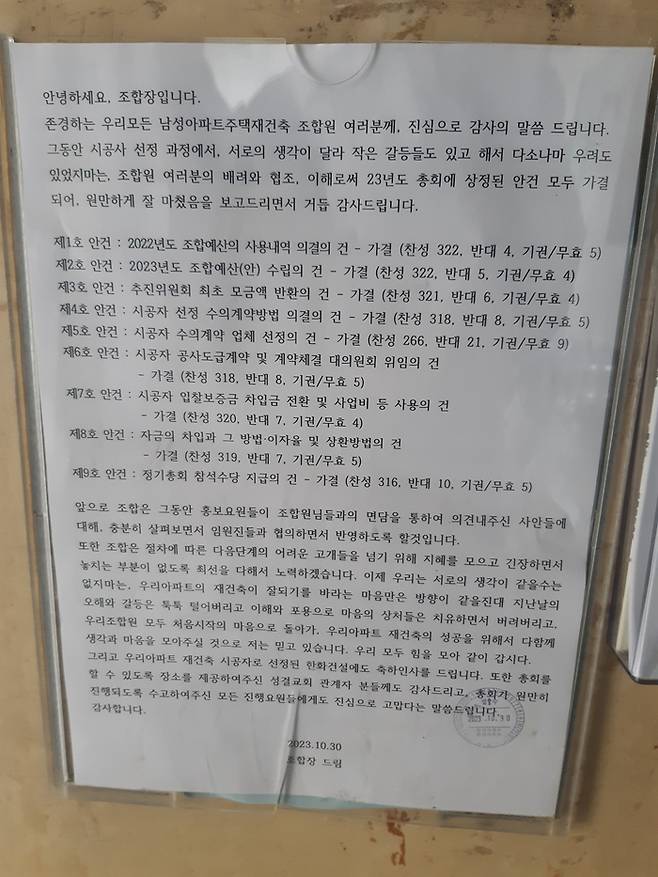 안녕하세요, 조합장입니다.
존경하는 우리모든 남성아파트주택재건축 조합원 여러분께, 진심으로 감사의 말씀 드립니다.
그동안 시공사 선정 과정에서, 서로의 생각이 달라 작은 갈등들도 있고 해서 다소나마 우려도
있었지마는, 조합원 여러분의 배려와 협조, 이해로써 23년도 총회에 상정된 안건 모두 가결
되어, 원만하게 잘 마쳤음을 보고드리면서 거듭 감사드립니다.
제1호 안건 : 2022년도 조합예산의 사용내역 의결의 건 - 가결 (찬성 322, 반대 4, 기권/무효 5)
제2호 안건 : 2023년도 조합예산(안) 수립의 건 - 가결 (찬성 322, 반대 5, 기권/무효 4)
제3호 안건 : 추진위원회 최초 모금액 반환의 건 - 가결 (찬성 321, 반대 6, 기권/무효 4)
제4호 안건 : 시공자 선정 수의계약방법 의결의 건 - 가결 (찬성 318, 반대 8, 기권/무효 5)
제5호 안건 : 시공자 수의계약 업체 선정의 건 - 가결 (찬성 266, 반대 21, 기권/무효 9)
제6호 안건 : 시공자 공사도급계약 및 계약체결 대의원회 위임의 건
- 가결 (찬성 318, 반대 8, 기권/무효 5)
제7호 안건 : 시공자 입찰보증금 차입금 전환 및 사업비 등 사용의 건
- 가결 (찬성 320, 반대 7, 기권/무효 4)
제8호 안건 : 자금의 차입과 그 방법·이자율 및 상환방법의 건
- 가결 (찬성 319, 반대 7, 기권/무효 5)
제9호 안건 : 정기총회 참석수당 지급의 건 - 가결 (찬성 316, 반대 10, 기권/무효 5)
앞으로 조합은 그동안 홍보요원들이 조합원님들과의 면담을 통하여 의견내주신 사안들에
대해, 충분히 살펴보면서 임원진들과 협의하면서 반영하도록 할것입니다.
또한 조합은 절차에 따른 다음단계의 어려운 고개들을 넘기 위해 지혜를 모으고 긴장하면서
놓치는 부분이 없도록 최선을 다해서 노력하겠습니다. 이제 우리는 서로의 생각이 같을수는
없지마는, 우리아파트의 재건축이 잘되기를 바라는 마음만은 방향이 같을진대 지난날의
오해와 갈등은 툭툭 털어버리고 이해와 포용으로 마음의 상처들은 치유하면서 버려버리고,
우리조합원 모두 처음시작의 마음으로 돌아가, 우리아파트 재건축의 성공을 위해서 다함께
생각과 마음을 모아주실 것으로 저는 믿고 있습니다. 우리 모두 힘을 모아 같이 갑시다.
그리고 우리아파트 재건축 시공자로 선정된 한화건설에도 축하인사를 드립니다. 또한 총회를
할 수 있도록 장소를 제공하여주신 성결교회 관계자 분들께도 감사드리고, 총회가 원만히
진행되도록 수고하여주신 모든 진행요원들에게도 진심으로 고맙다는 말씀드립니다.
감사합니다.
2023.10.30
2023.10.30
조합장 드림